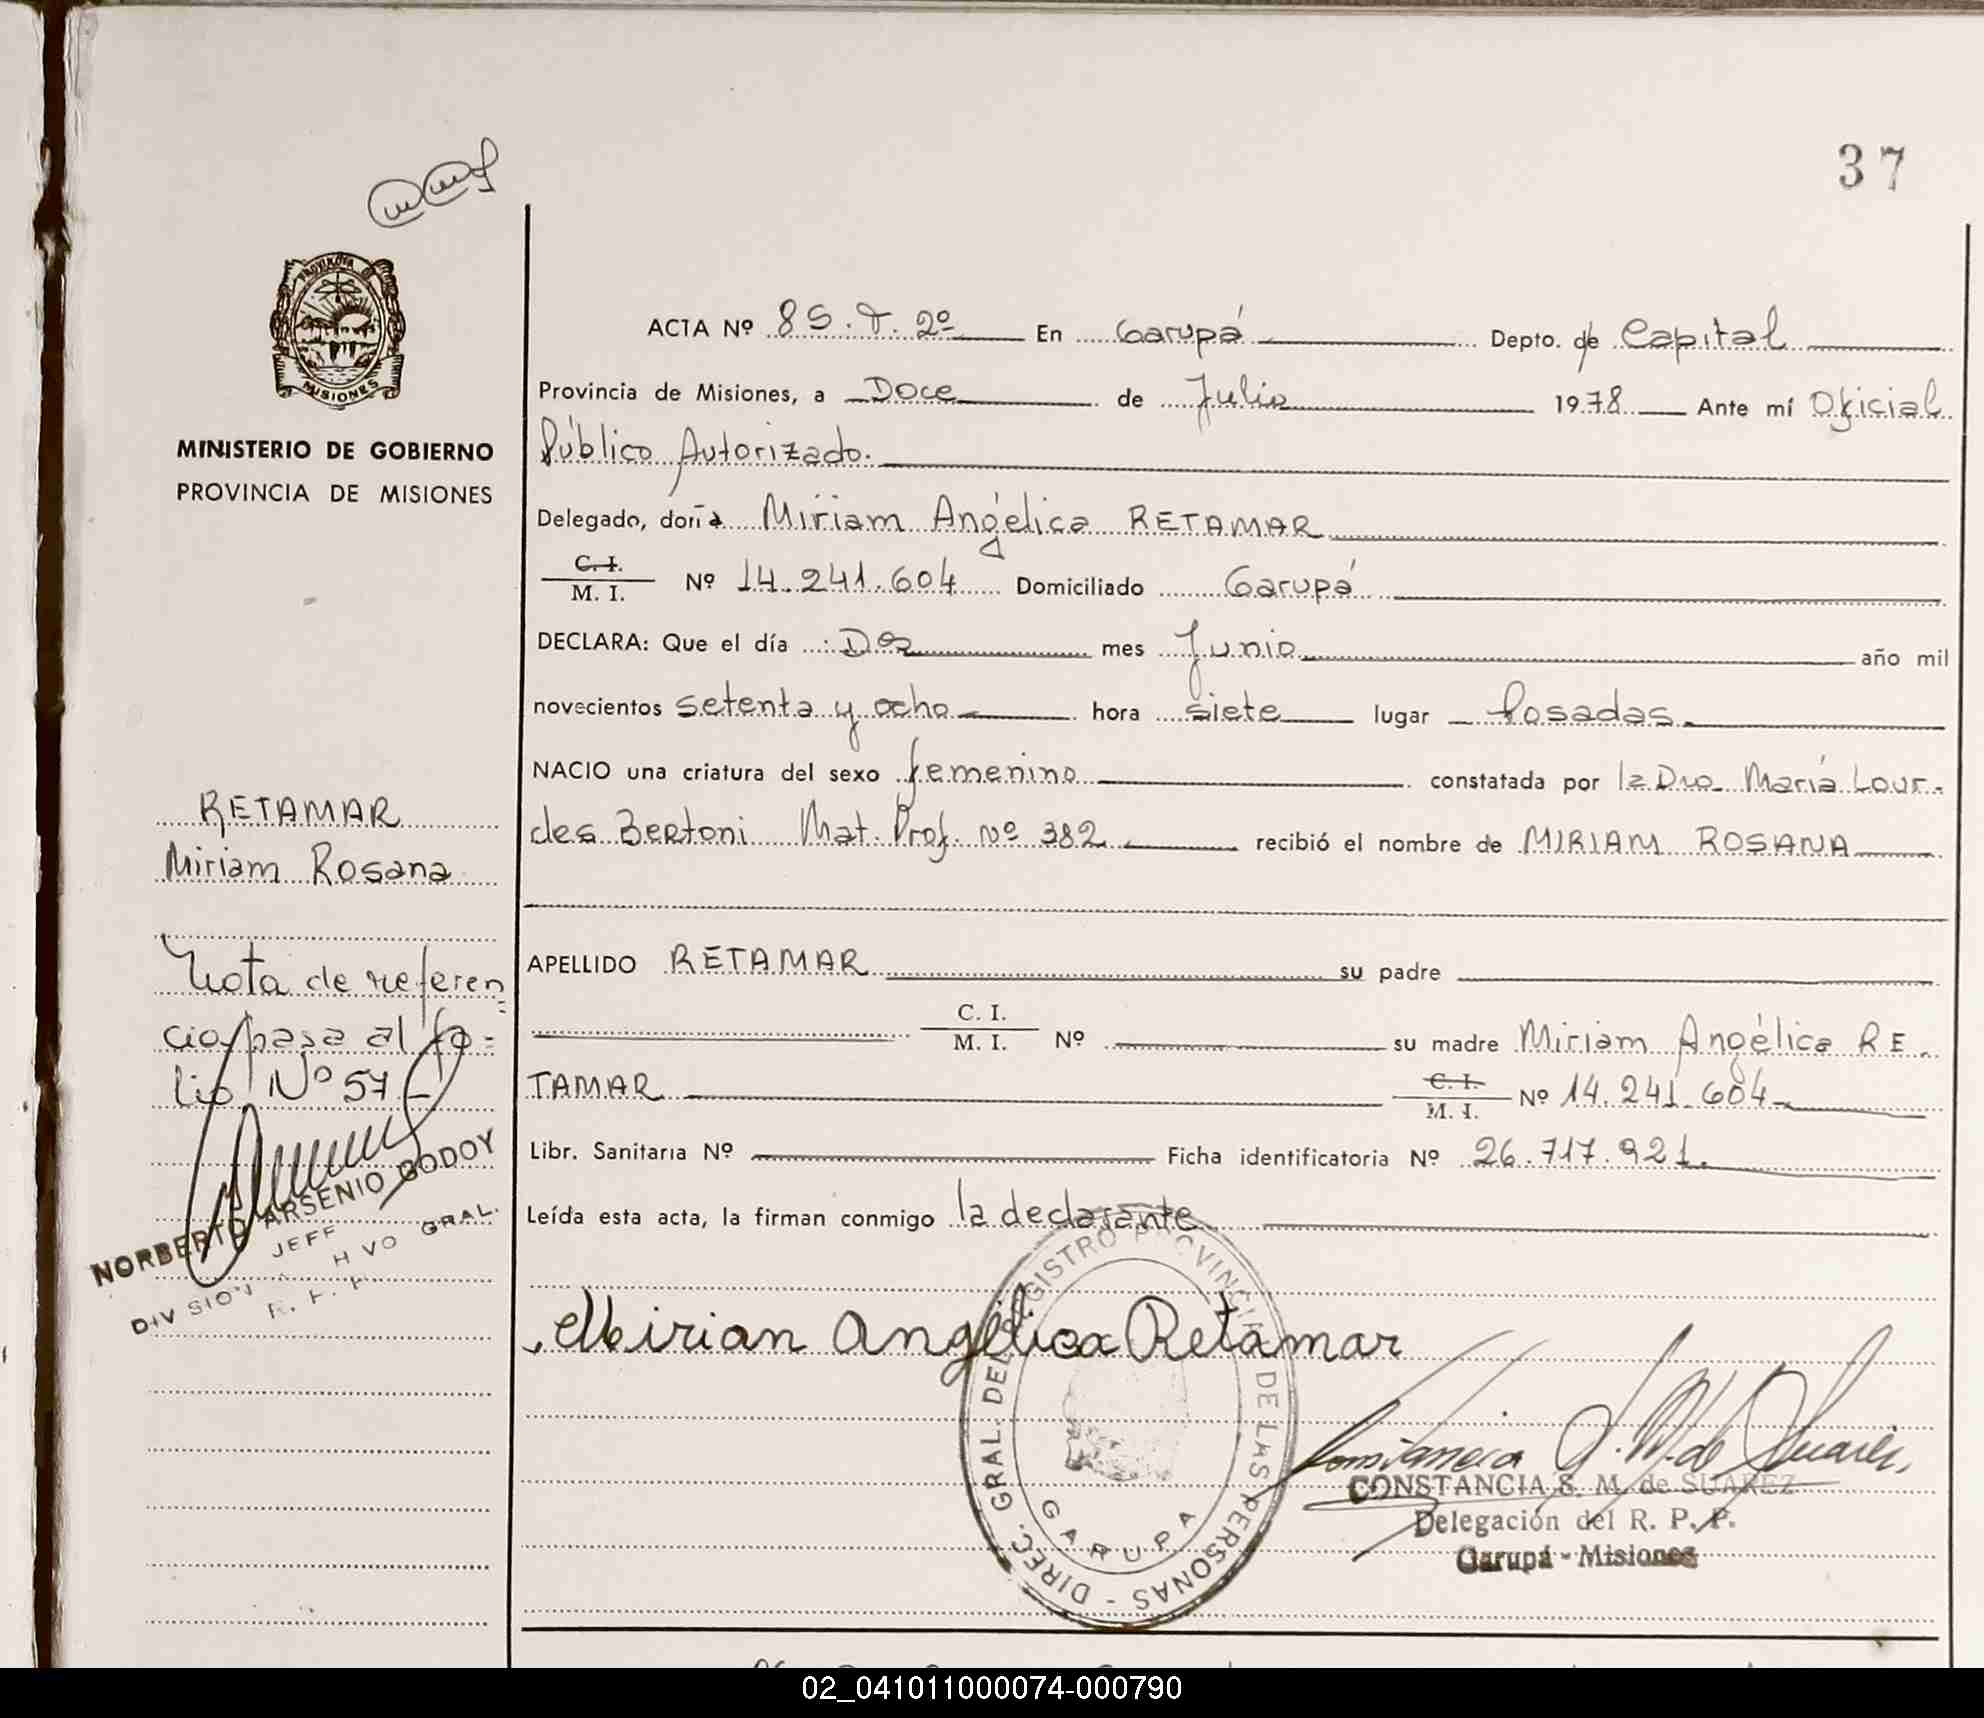 37
PROVINCIA DE
MISIONES
MINISTERIO DE GOBIERNO
PROVINCIA DE MISIONES
ACTA Nº 85. T. 2º En Garupá Depto. de Capital
Provincia de Misiones, a Doce de Julio 1978 Ante mí Oficial
Público Autorizado.
Delegado, doña Miriam Angélica RETAMAR
C. I.
M. I. Nº 14.241.604 Domiciliado Garupá
DECLARA: Que el día Dos mes Junio año mil
novecientos setenta y ocho hora siete lugar Posadas
NACIO una criatura del sexo femenino constatada por la Dra. María Lour-
des Bertoni Mat. Prof. Nº 382 recibió el nombre de MIRIAM ROSANA
APELLIDO RETAMAR su padre
C. I.
M. I. Nº su madre Miriam Angélica RE-
TAMAR C. I.
M. I. Nº 14.241.604
Libr. Sanitaria Nº Ficha identificatoria Nº 26.717.921.
Leída esta acta, la firman conmigo la declarante
Mirian Angélica Retamar
DIREC. GRAL. DEL REGISTRO PROVINCIAL DE LAS PERSONAS -
GARUPA
Constancia S. M. de Suarez
CONSTANCIA S. M. de SUAREZ
Delegación del R. P. P.
Garupá - Misiones
RETAMAR
Miriam Rosana
Nota de referen
cia pasa al fo-
lio Nº 57
NORBERTO ARSENIO GODOY
JEFE
DIVISION GRAL.
02_041011000074-000790